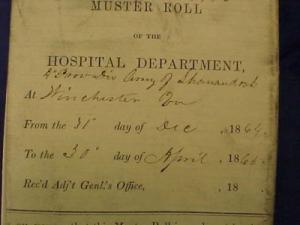 MUSTER ROLL
OF THE
HOSPITAL DEPARTMENT,
Prov Div Army of Shenandoah
At Winchester
From the 31" day of Dec , 1864,
To the 30" day of April , 186
Rec'd Adj't Genl.'s Office, , 18